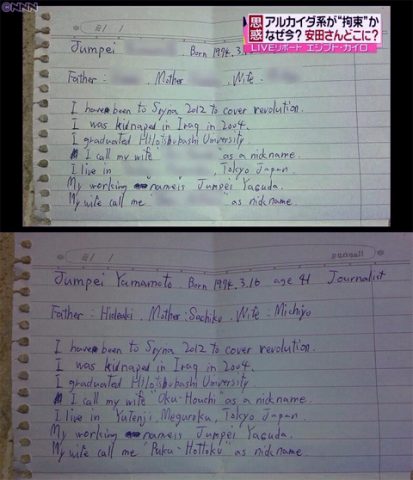 ©NNN
思惑
アルカイダ系が“拘束”か
なぜ今？ 安田さんどこに？
LIVEリポート エジプト・カイロ
Jumpei Born 1974.3.16
Father : , Mother , Wife :
I have been to Syria 2012 to cover revolution.
I was kidnaped in Iraq in 2004.
I graduated Hitotsubashi University
I call my wife " " as a nickname.
I live in , Tokyo Japan.
My working name is Jumpei Yasuda.
My wife call me " " as nickname.
Jumpei Yamamoto Born 1974.3.16 age 41 Journalist
Father : Hideaki , Mother : Sachiko , Wife : Michiyo
I have been to Syria 2012 to cover revolution.
I was kidnaped in Iraq in 2004.
I graduated Hitotsubashi University
I call my wife "Oku-Houchi" as a nickname.
I live in Yutenji, Meguroku, Tokyo Japan.
My working name is Jumpei Yasuda.
My wife call me "Puku-Hottoku" as nickname.